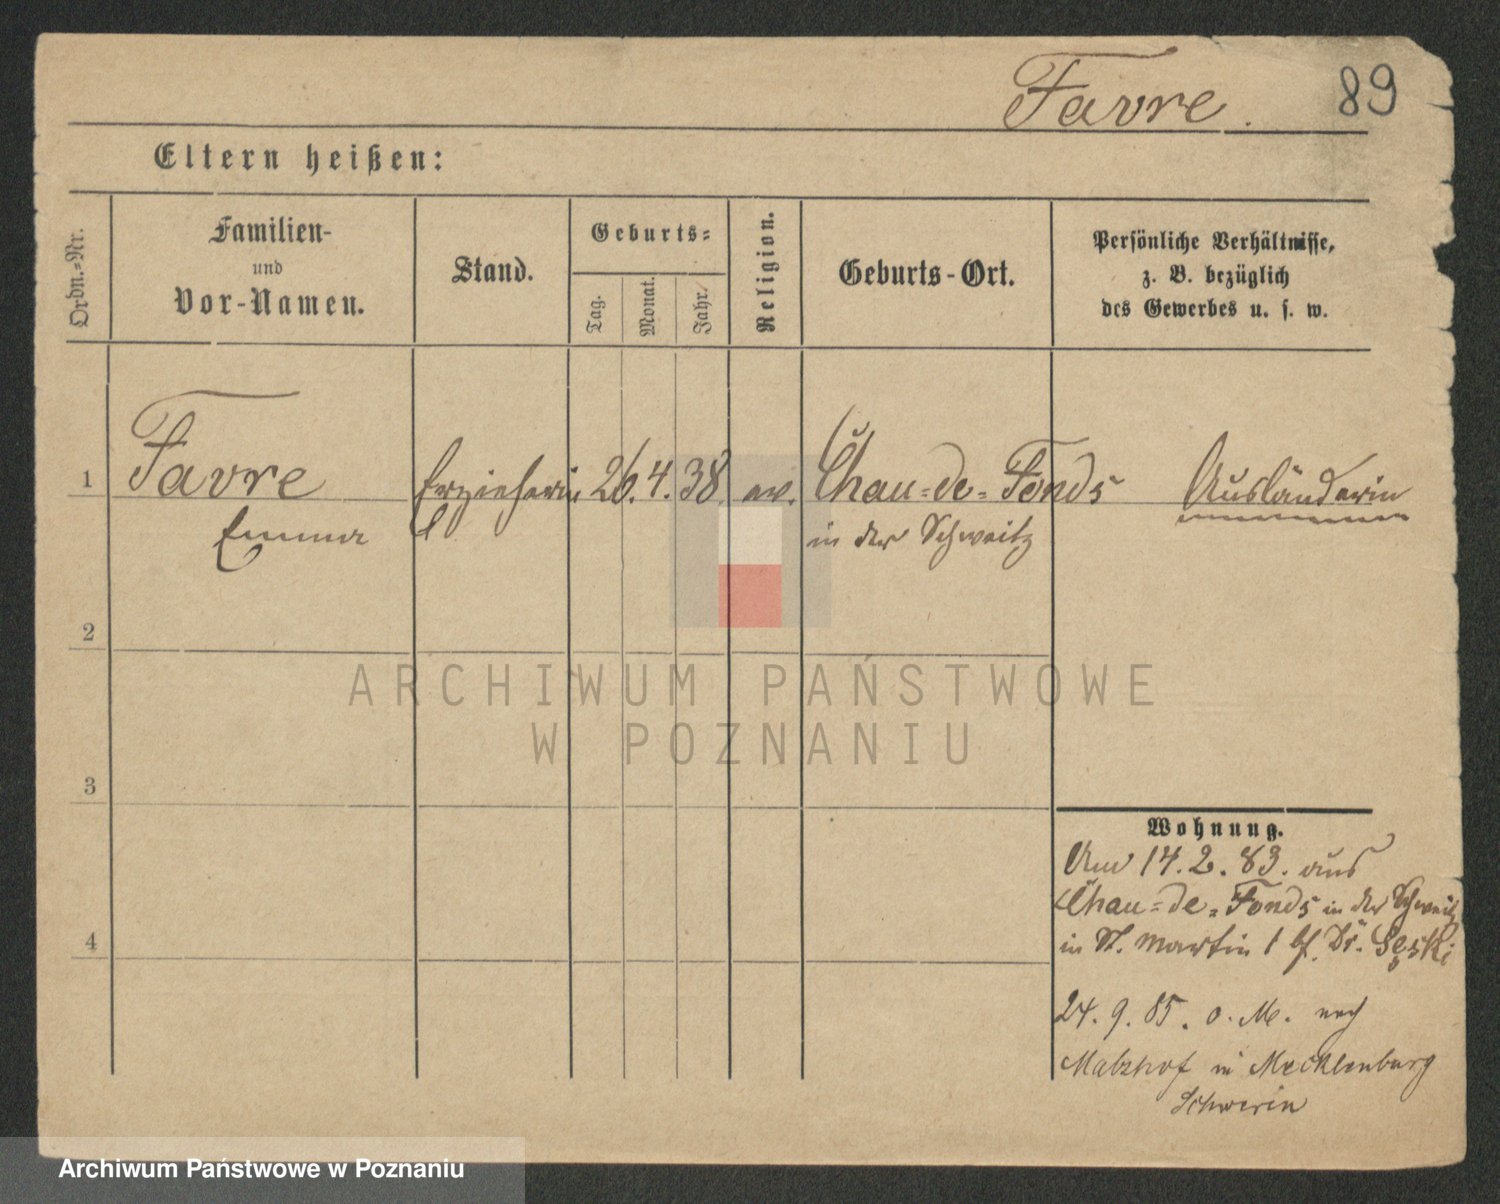 Favre. 89
Eltern heißen:
Ordn.=Nr.
Familien-
und
Vor-Namen.
Stand.
Geburts=
Tag.
Monat.
Jahr.
Religion.
Geburts-Ort.
Persönliche Verhältnisse,
z. B. bezüglich
des Gewerbes u. s. w.
1 Favre Erzieherin 26. 4. 38 ev. Chau=de=Fonds Ausländerin
Emma in der Schweitz
2
3
4
Wohnung.
Am 14. 2. 83. aus
Chau=de=Fonds in der Schweitz
in St. Martin 1 bf. Dr.
24. 9. 85. o. M. nach
in Mecklenburg
Schwerin
ARCHIWUM PAŃSTWOWE
W POZNANIU
Archiwum Państwowe w Poznaniu